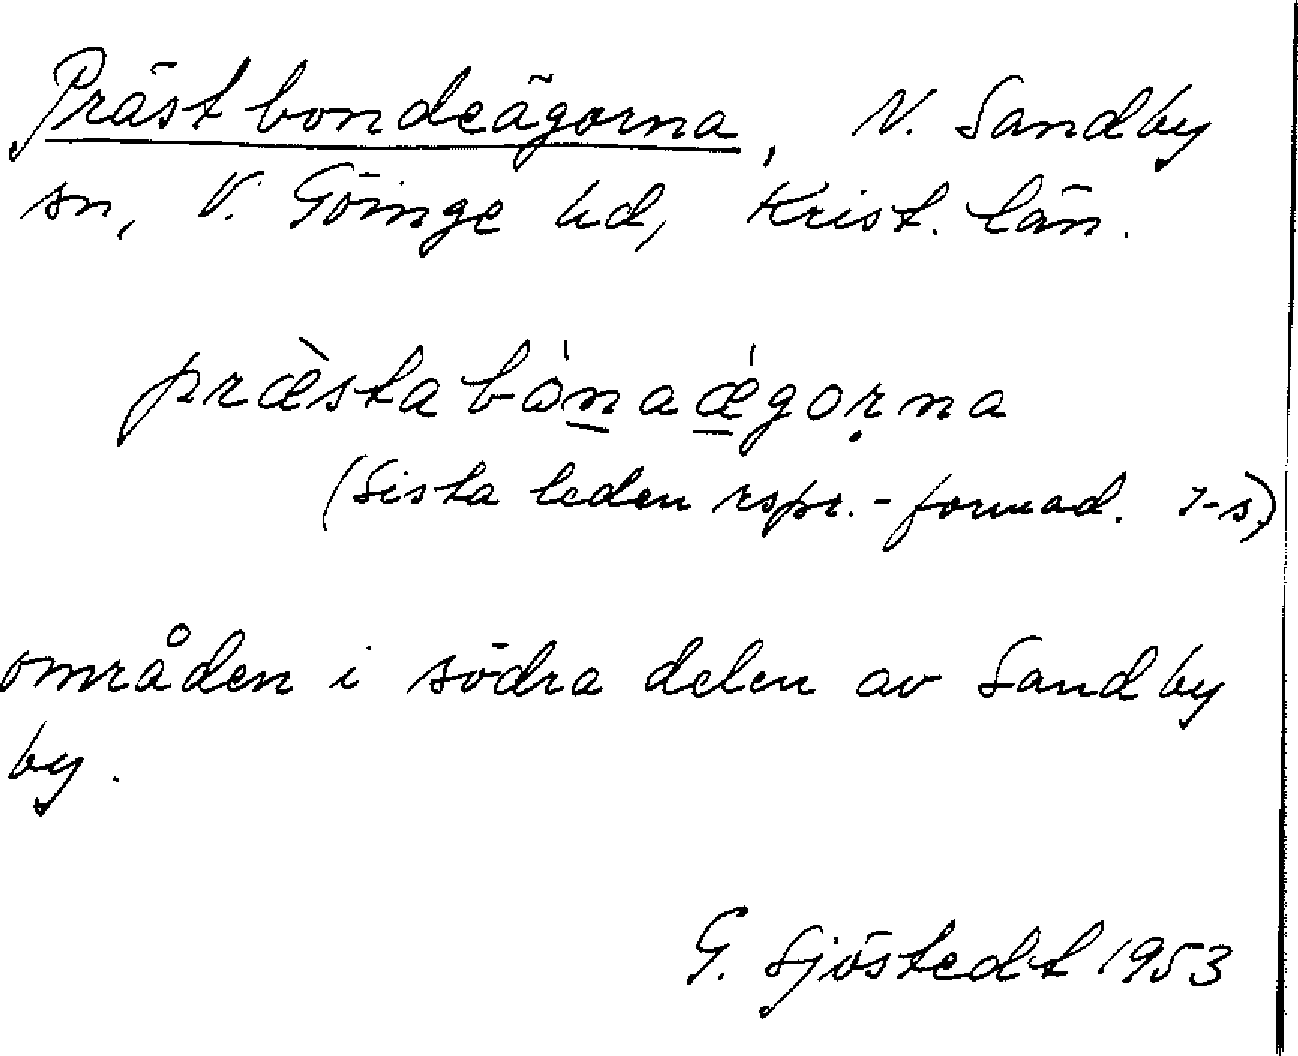 Prästbondeägorna, N. Sandby
sn, V. Göinge hd, Krist. län.
præ̀stabȯ́n̲aǽ̲gorṇa
(Sista leden rspr.-formad.
områden i södra delen av Sandby
by.
G. Sjöstedt 1953